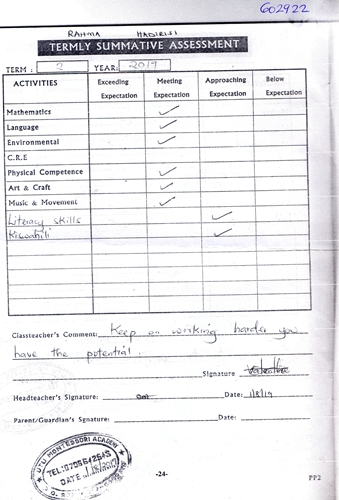 602922
RAHMA HADIRISI
TERMLY SUMMATIVE ASSESSMENT
TERM : 2 YEAR: 2019
ACTIVITIES Exceeding Expectation Meeting Expectation Approaching Expectation Below Expectation
Mathematics ✓
Language ✓
Environmental ✓
C.R.E
Physical Competence ✓
Art & Craft ✓
Music & Movement ✓
Literacy skills ✓
Kiswahili ✓
Classteacher's Comment: Keep on working harder you
have the potential.
Signature
Headteacher's Signature: Date: 1/8/19
Parent/Guardian's Signature: Date:
UTU MONTESSORI ACADEMY
TEL:0705642645
DATE
-24-
PP2